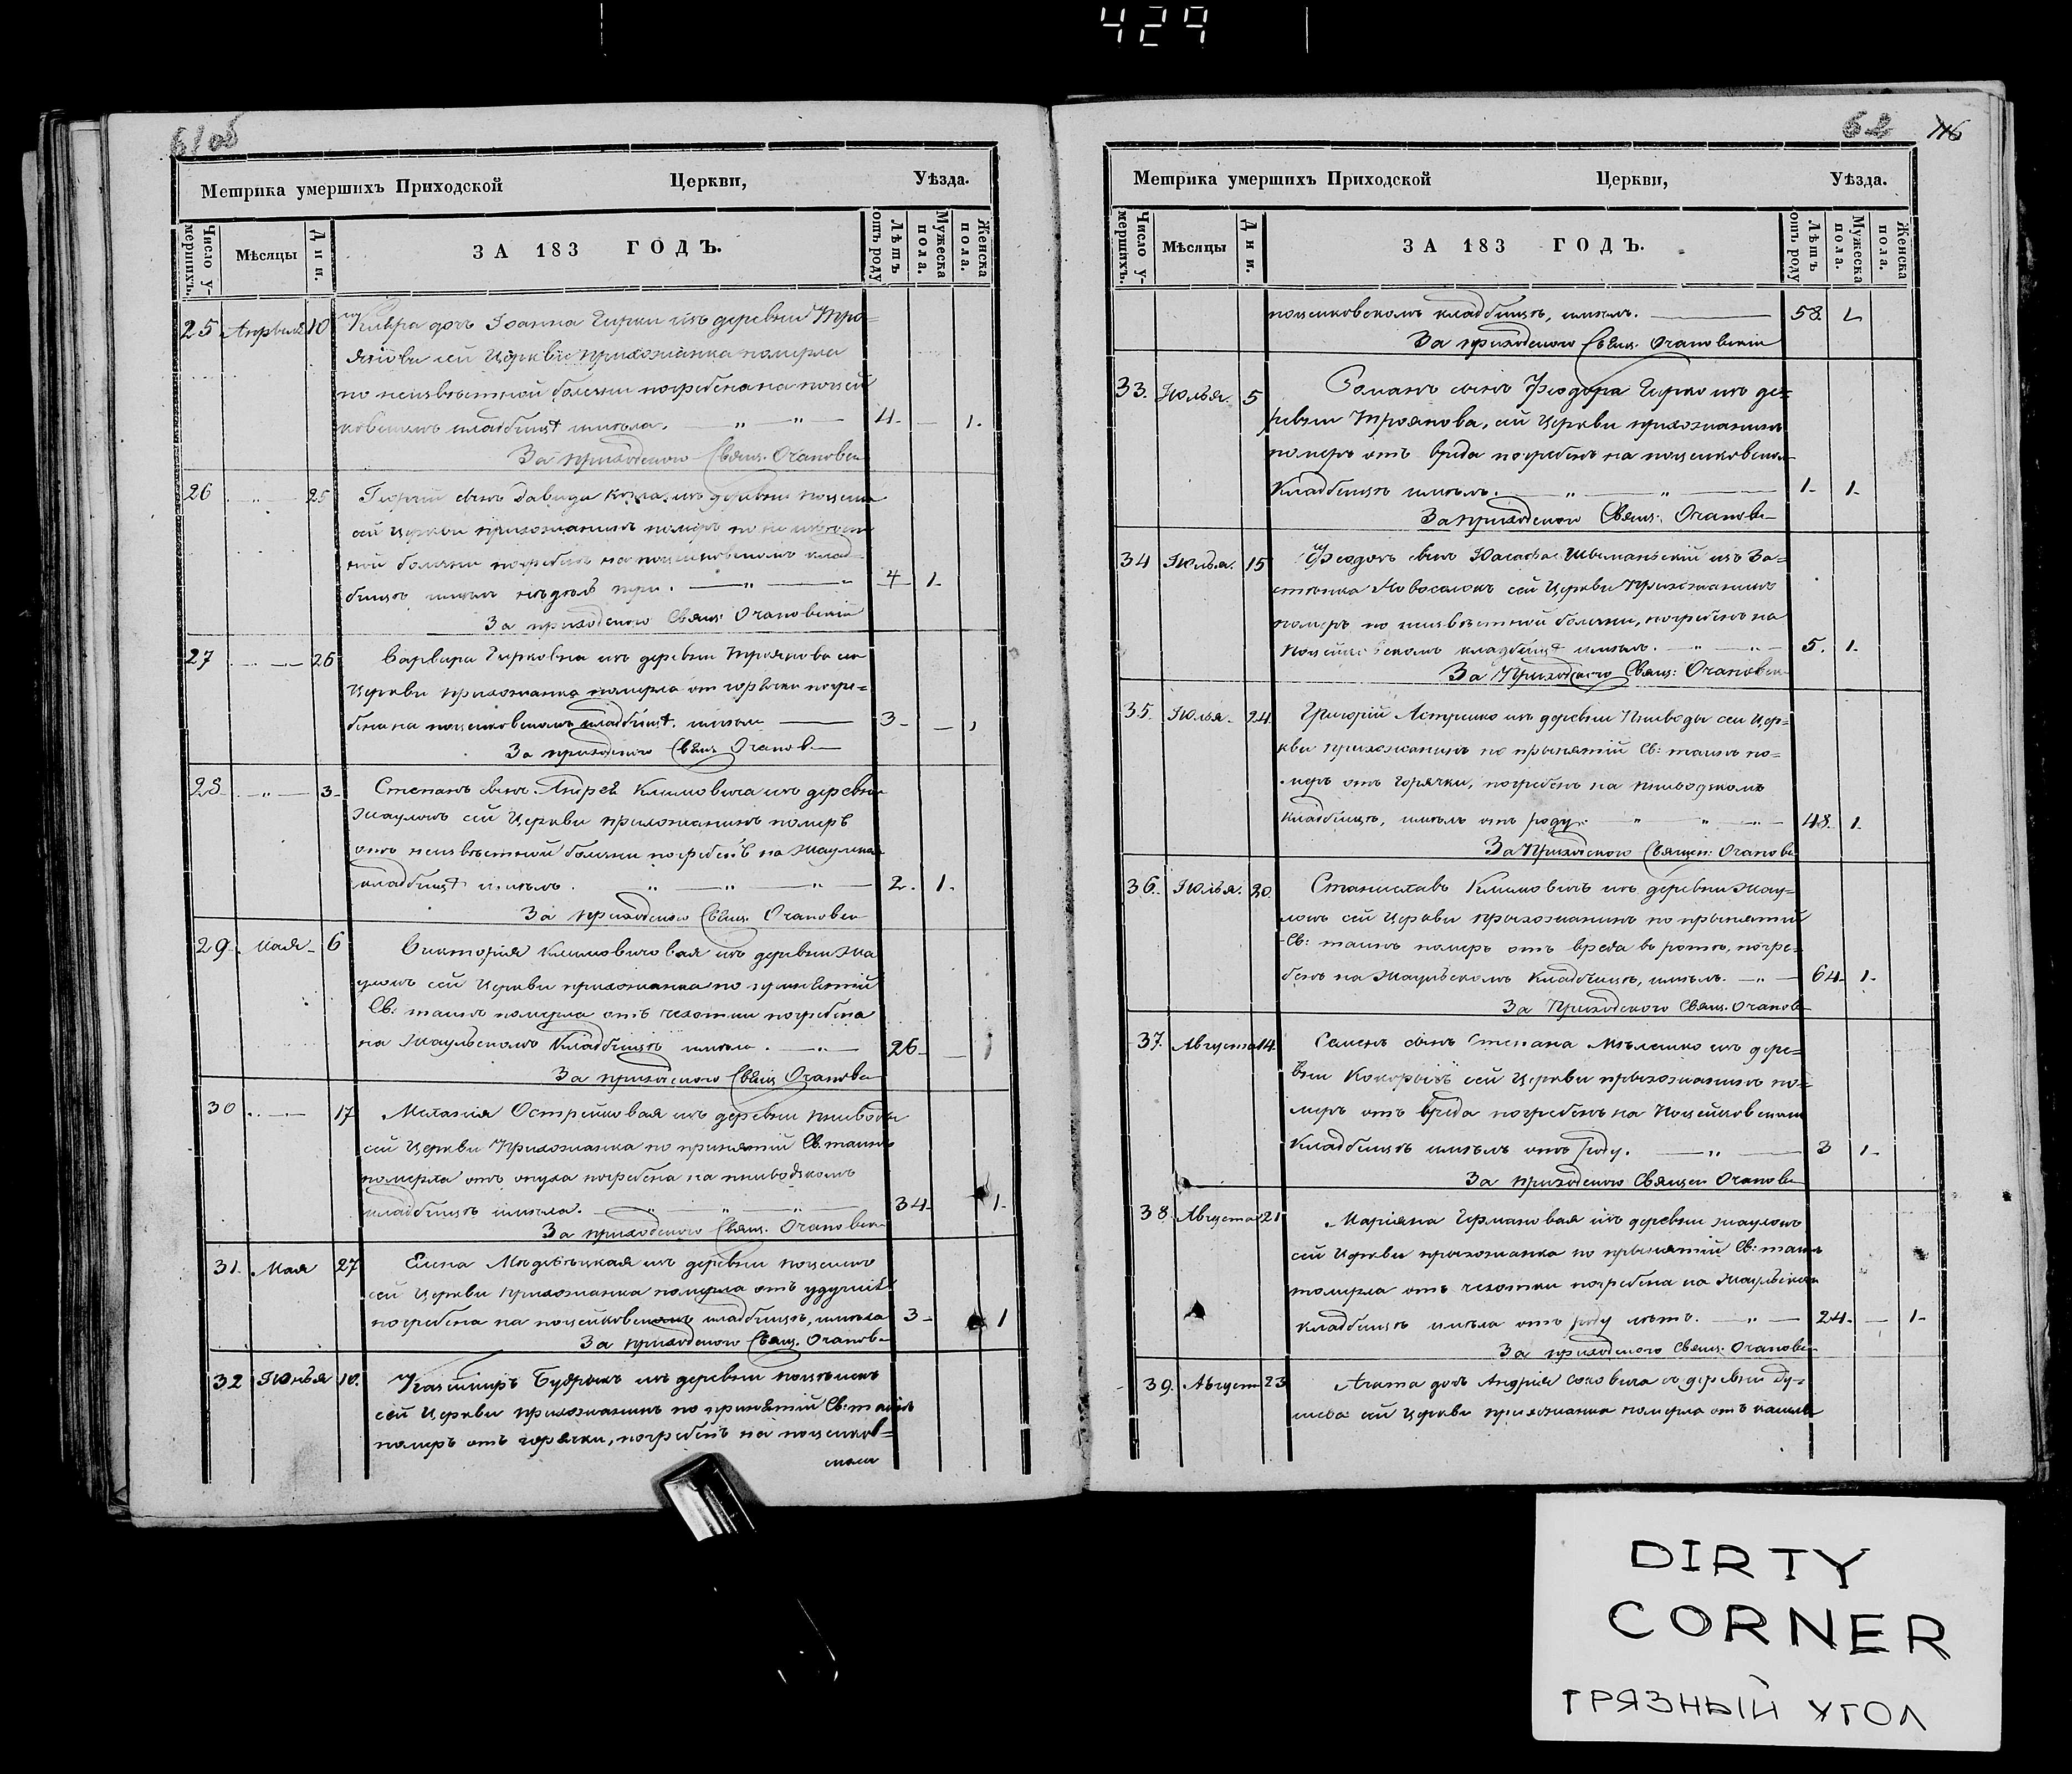 429
61 об
Метрика умершихъ Приходской Церкви, Уѣзда.
Число умершихъ. Мѣсяцы Дни. ЗА 183 ГОДЪ. Лѣтъ отъ роду Мужеска пола. Женска пола.
25 Апрѣля 10 дочь Іоанна Гирки изъ деревни Тро=
янова сей Церкви прихожанка померла
по неизвѣстной болезни погребена на поцей
ковскомъ кладбищѣ имѣла. 4. — 1.
За приходского Свящ. Очановск
26 „ 25 Георгій сынъ Давида изъ деревни
сей Церкви прихожанинъ померъ по неизвѣст
ной болезни погребенъ на поцейковскомъ клад=
бищѣ имѣлъ недѣль три. 4 1.
За приходского Свящ: Очановскій
27 26 Варвара Гирковна изъ деревни Троянова сей
Церкви прихожанка померла отъ горячки погре=
бена на поцейковскомъ кладбищѣ. имѣла 3 —
За приходского Свящ Оганов
28 „ 3 Степанъ сынъ Андрея Климовича изъ деревни
Жаулокъ сей Церкви прихожанинъ померъ
отъ неизвѣстной болезни погребенъ на
кладбищѣ имѣлъ. 2. 1.
За приходского Свящ. Очановск
29 Мая 6 Викторія Климовичовая изъ деревни Жа
улокъ сей Церкви прихожанка по принятіи
Св: таинъ померла отъ чехотки погребена
на Жаульскомъ Кладбищѣ имѣла. 26 —
За приходского Свящ Оганов
30 17 Меланія Острейковая изъ деревни Пниводы
сей Церкви Прихожанка по принятіи Св. таинъ
померла отъ опуха погребена на пниводскомъ
кладбищѣ имѣла. 34 1.
За приходского Свящ. Очановск
31. Мая 27 Елена изъ деревни
сей Церкви прихожанка померла отъ удушія
погребена на поцейковскомъ кладбищѣ, имѣла 3 — 1
За приходского Свящ. Оганов
32 Іюнья 10. Казимиръ Будрыкъ изъ деревни
сей Церкви прихожанинъ по принятіи Св: таинъ
померъ отъ горячки, погребенъ на поцейков=
скомъ
62 116
Метрика умершихъ Приходской Церкви, Уѣзда.
Число умершихъ. Мѣсяцы Дни. ЗА 183 ГОДЪ. Лѣтъ отъ роду Мужеска пола. Женска пола.
поцейковскомъ кладбищѣ, имѣлъ. 58. 1
За приходского Свящ. Очановскій
33. Іюлья. 5 Романъ сынъ Феодора Гирко изъ де=
ревни Троянова, сей Церкви прихожанинъ
померъ отъ вреда погребенъ на поцейковском
Кладбищѣ имѣлъ. 1. 1.
За приходского Свящ: Оганов
34 Іюлья. 15 Феодоръ сынъ изъ За=
стѣнка Новоселокъ сей Церкви Прихожанинъ
померъ по неизвѣстной болезни, погребенъ на
Поцейковскомъ кладбищѣ имѣлъ. 5. 1.
За Приходского Свящ: Очановск
35. Іюлья 24. Григорій изъ деревни Пниводы сей Цер=
кви прихожанинъ по прынятіи Св: таинъ по=
меръ отъ Горячки, погребенъ на пниводскомъ
Кладбищѣ, имѣлъ отъ роду. 48. 1.
За Приходского Священ: Оганов
36. Іюлья. 20. Станиславъ Климовичъ изъ деревни Жау=
локъ сей Церкви прыхожанинъ по прынятіи
Св: таинъ померъ отъ вреда въ ротѣ, погре=
бенъ на Жаульскомъ Кладбищѣ, имѣлъ. 64. 1.
За Приходского Свящ. Оганов
37. Августа 14. Семенъ сынъ Степана изъ дере=
вни сей Церкви прыхожанинъ по=
меръ отъ вреда погребенъ на Поцейковском
Кладбищѣ имѣлъ отъ Роду. 3 1.
За приходского Священ Оганов
38. Августа 21 Маріяна Германовая изъ деревни Жаулокъ
сей Церкви прыхожанка по прынятіи Св: таинъ
померла отъ чехотки погребена на Жаульском
Кладбищѣ имѣла отъ роду лѣтъ. 24. — 1.
За приходского Свящ. Оганов
39. Август 23 Агата дочь Андрея съ деревни Ду=
сей Церкви прихожанка померла отъ кашля
DIRTY
CORNER
ГРЯЗНЫЙ УГОЛ